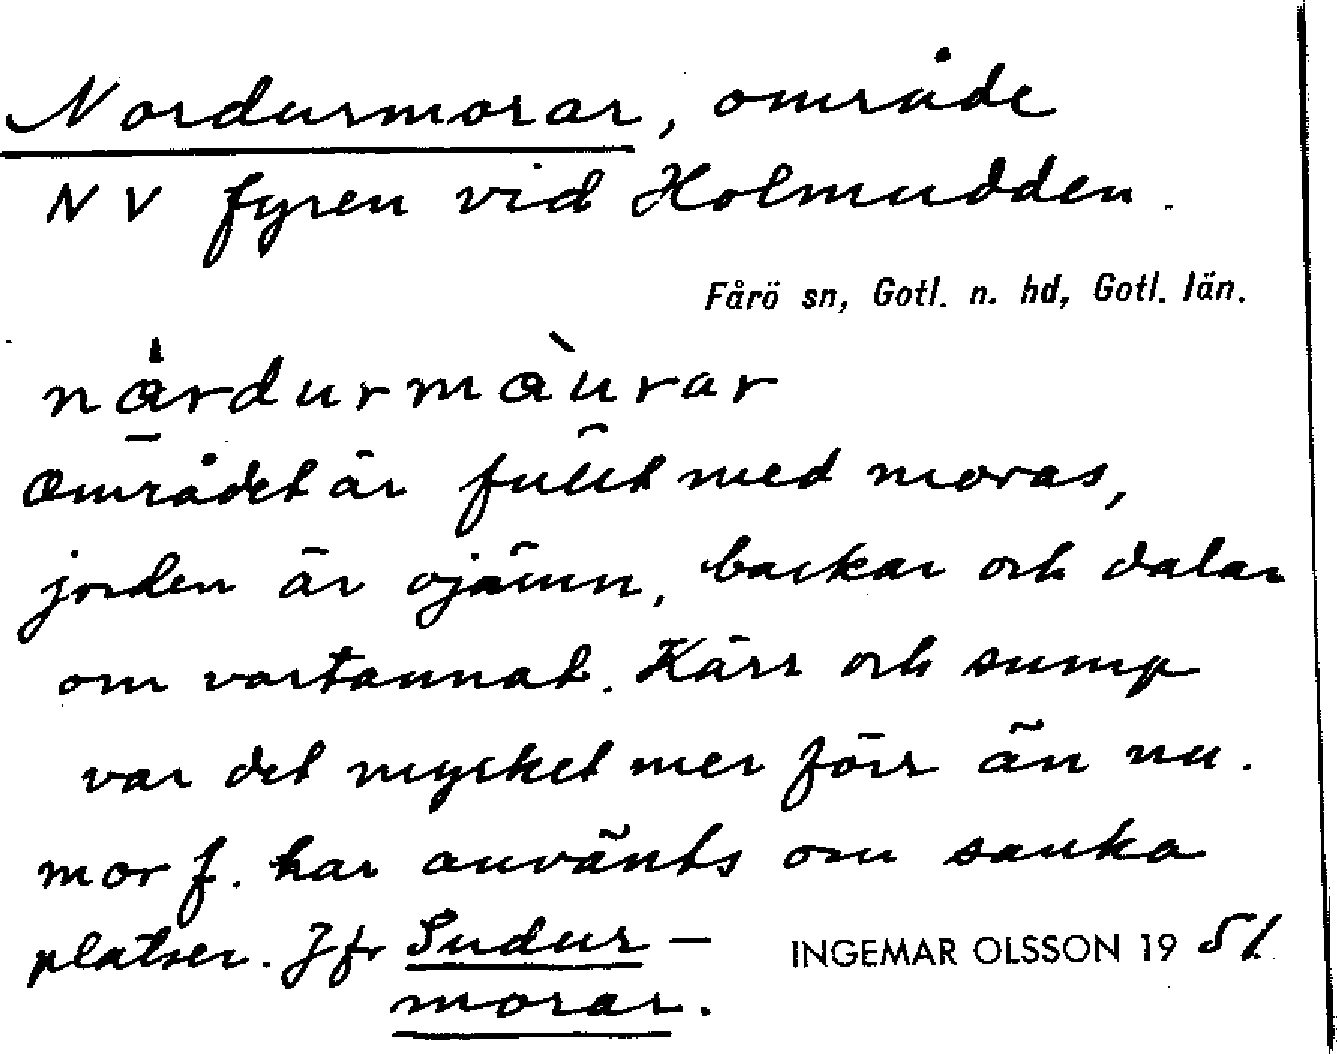 Nordurmorar, område
NV fyren vid Holmudden.
Fårö sn, Gotl. n. hd, Gotl. län.
nårdurmàurar
Området är fullt med moras,
jorden är ojämn, backar och dalar
om vartannat. Kärr och sump
var det mycket mer förr än nu.
mor f. har använts om sanka
platser. Jfr Sudur-
INGEMAR OLSSON 19 51
morar.